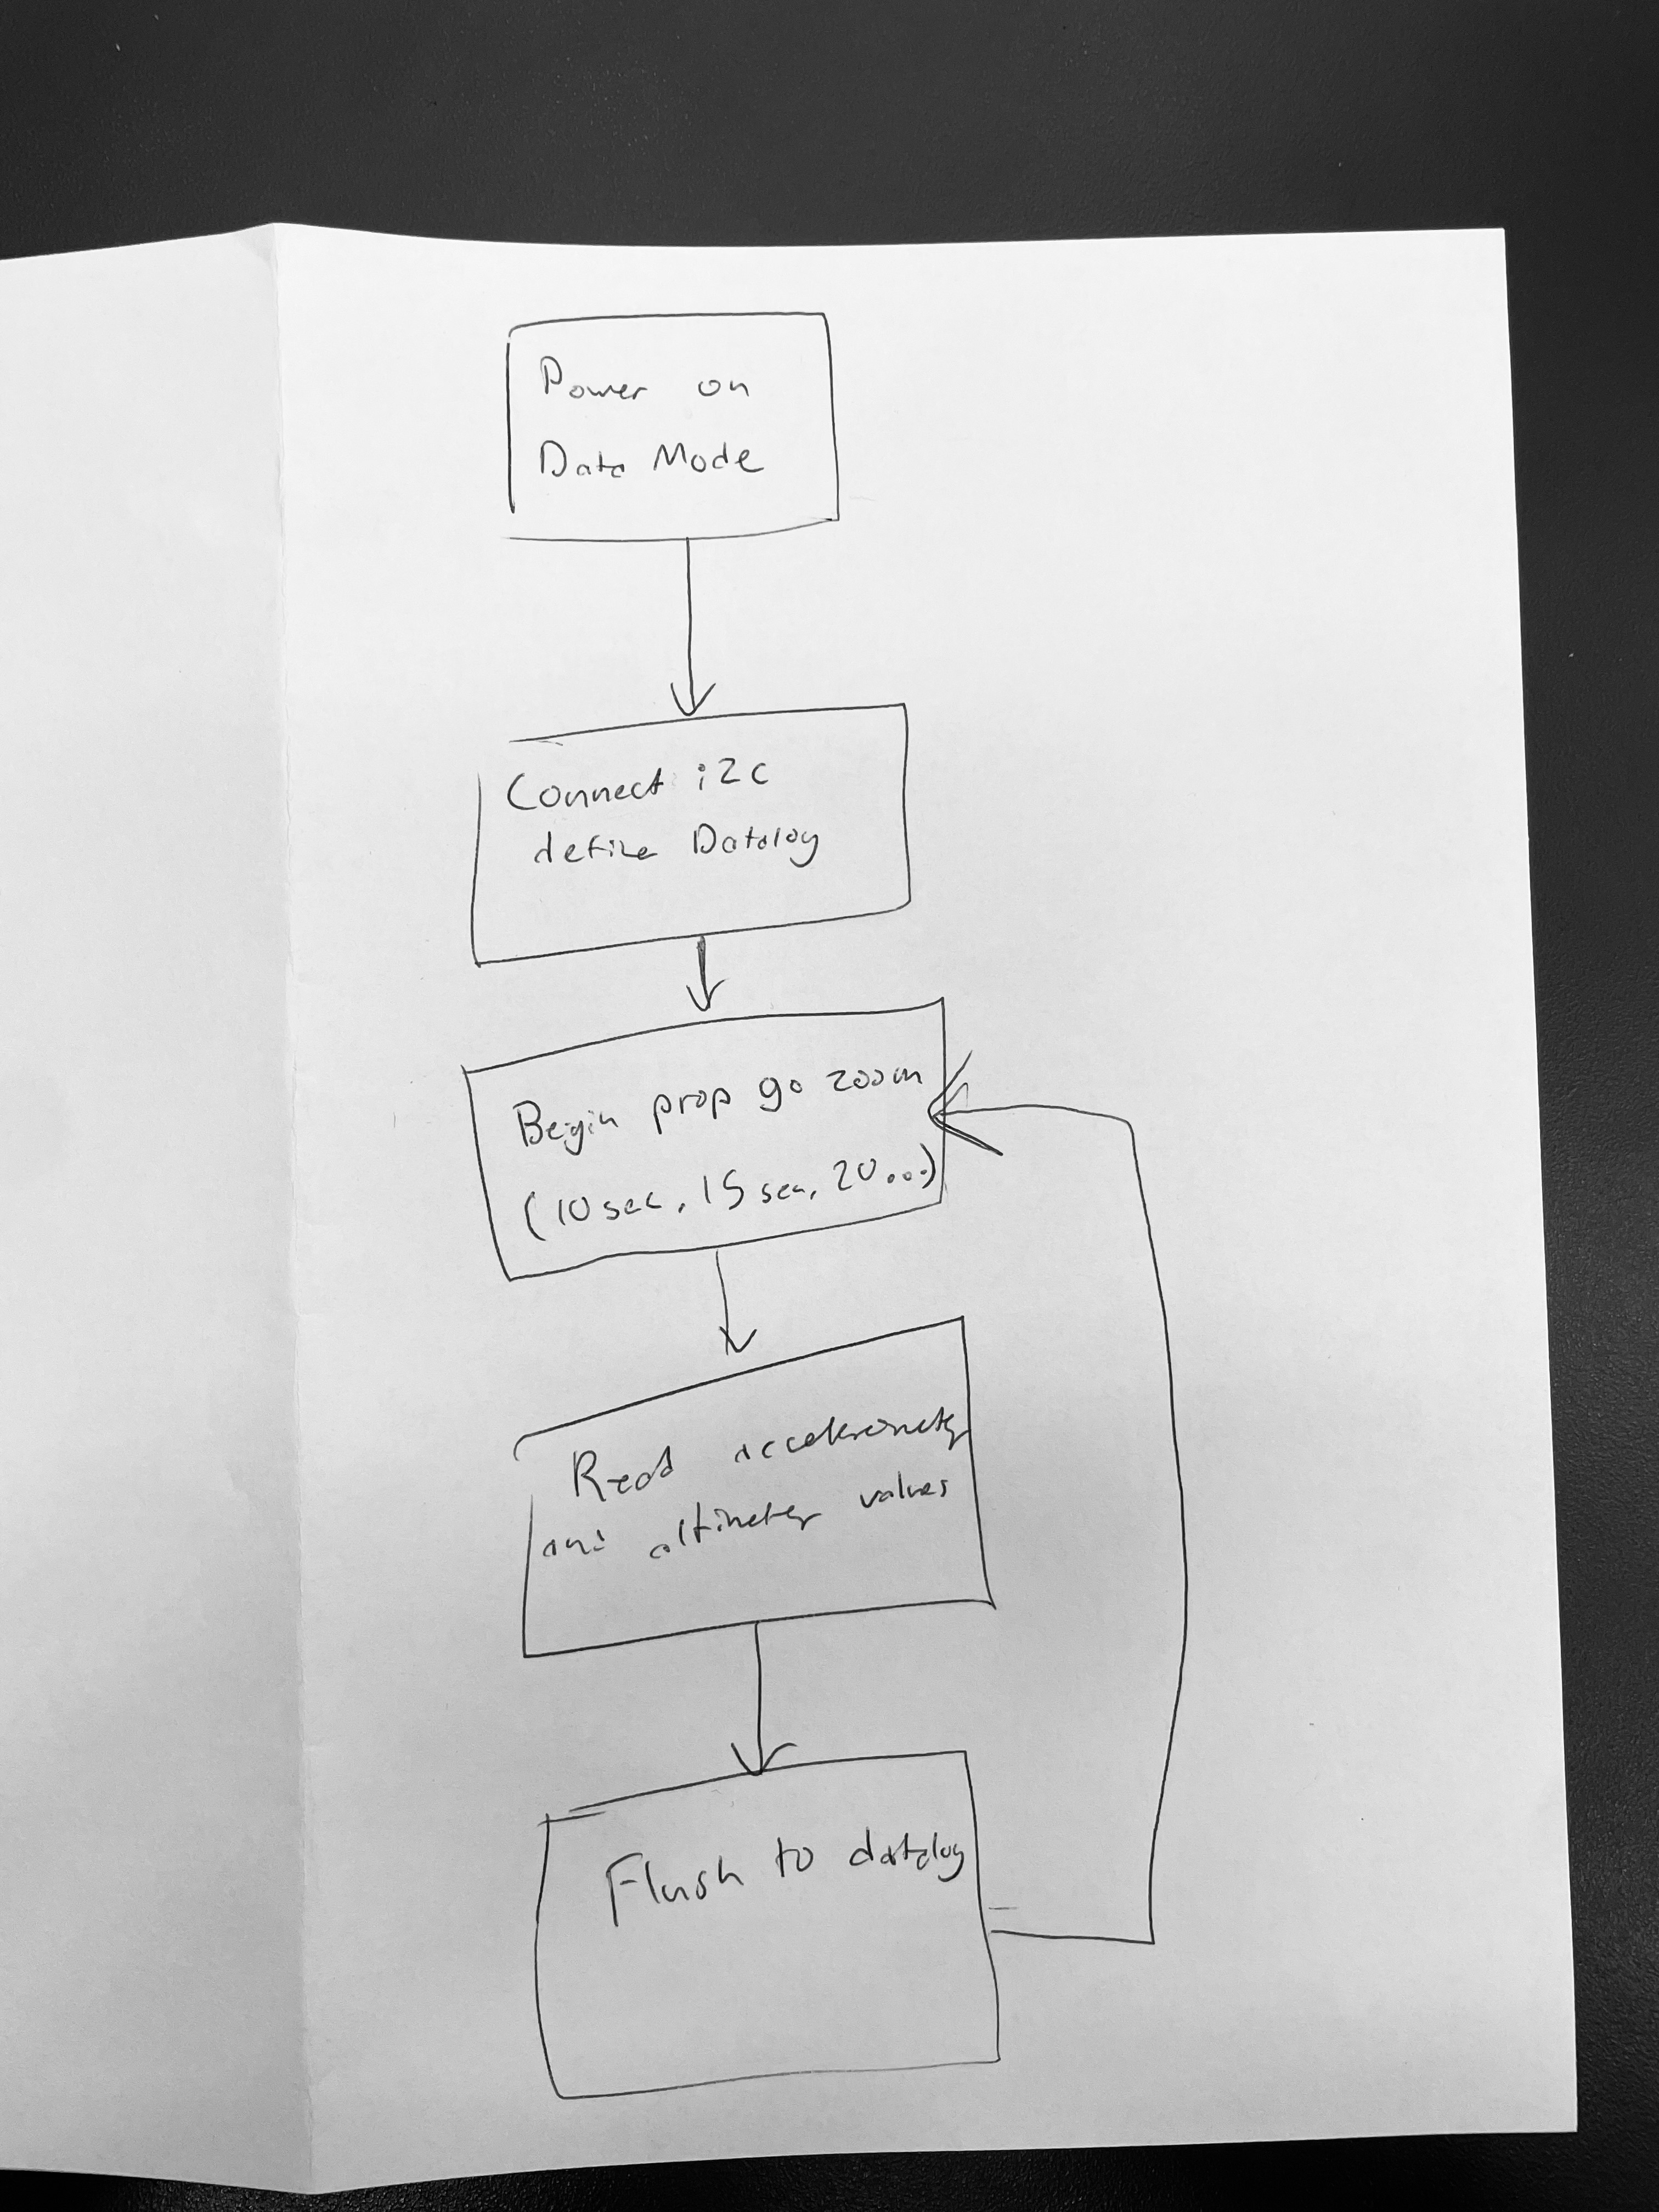 Power on
Data Mode
Connect i2c
define Datalog
Begin prop go zoom
(10 sec, 15 sec, 20...)
Read accelerometer
and altimeter values
Flush to datalog